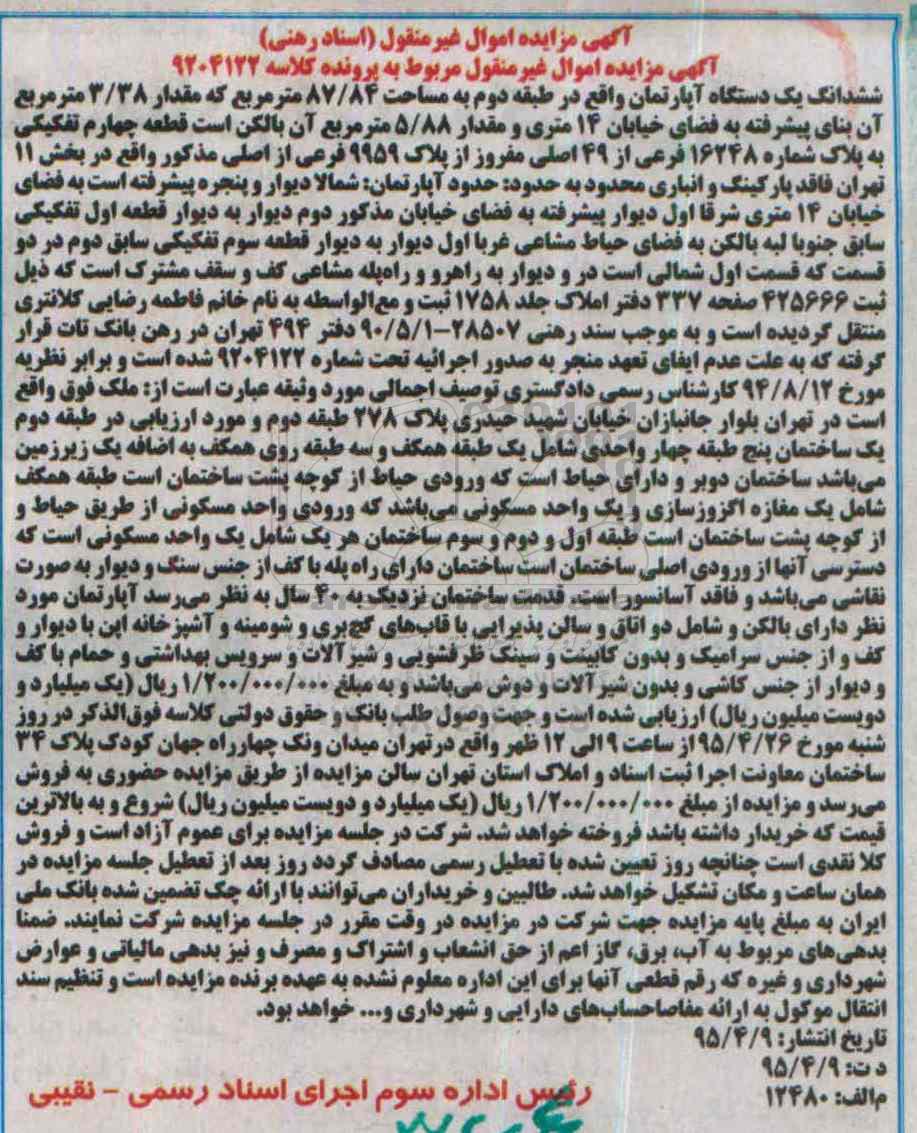 آگهی مزایده اموال غیرمنقول (اسناد رهنی)
آگهی مزایده اموال غیرمنقول مربوط به پرونده کلاسه ۹۲۰۴۱۲۲
ششدانگ یک دستگاه آپارتمان واقع در طبقه دوم به مساحت ۸۷/۸۴ مترمربع که مقدار ۳/۳۸ مترمربع
آن بنای پیشرفته به فضای خیابان ۱۴ متری و مقدار ۵/۸۸ مترمربع آن بالکن است قطعه چهارم تفکیکی
به پلاک شماره ۱۶۲۴۸ فرعی از ۴۹ اصلی مفروز از پلاک ۹۹۵۹ فرعی از اصلی مذکور واقع در بخش ۱۱
تهران فاقد پارکینگ و انباری محدود به حدود: حدود آپارتمان: شمالا دیوار و پنجره پیشرفته است به فضای
خیابان ۱۴ متری شرقا اول دیوار پیشرفته به فضای خیابان مذکور دوم دیوار به دیوار قطعه اول تفکیکی
سابق جنوبا لبه بالکن به فضای حیاط مشاعی غربا اول دیوار به دیوار قطعه سوم تفکیکی سابق دوم در دو
قسمت که قسمت اول شمالی است در و دیوار به راهرو و راه‌پله مشاعی کف و سقف مشترک است که ذیل
ثبت ۴۲۵۶۶۶ صفحه ۳۳۷ دفتر املاک جلد ۱۷۵۸ ثبت و مع‌الواسطه به نام خانم فاطمه رضایی کلانتری
منتقل گردیده است و به موجب سند رهنی ۲۸۵۰۷-۹۰/۵/۱ دفتر ۴۹۴ تهران در رهن بانک تات قرار
گرفته که به علت عدم ایفای تعهد منجر به صدور اجرائیه تحت شماره ۹۲۰۴۱۲۲ شده است و برابر نظریه
مورخ ۹۴/۸/۱۲ کارشناس رسمی دادگستری توصیف اجمالی مورد وثیقه عبارت است از: ملک فوق واقع
است در تهران بلوار جانبازان خیابان شهید حیدری پلاک ۲۷۸ طبقه دوم و مورد ارزیابی در طبقه دوم
یک ساختمان پنج طبقه چهار واحدی شامل یک طبقه همکف و سه طبقه روی همکف به اضافه یک زیرزمین
می‌باشد ساختمان دوبر و دارای حیاط است که ورودی حیاط از کوچه پشت ساختمان است طبقه همکف
شامل یک مغازه اگزوزسازی و یک واحد مسکونی می‌باشد که ورودی واحد مسکونی از طریق حیاط و
از کوچه پشت ساختمان است طبقه اول و دوم و سوم ساختمان هر یک شامل یک واحد مسکونی است که
دسترسی آنها از ورودی اصلی ساختمان است ساختمان دارای راه پله با کف از جنس سنگ و دیوار به صورت
نقاشی می‌باشد و فاقد آسانسور است. قدمت ساختمان نزدیک به ۴۰ سال به نظر می‌رسد آپارتمان مورد
نظر دارای بالکن و شامل دو اتاق و سالن پذیرایی با قاب‌های گچ‌بری و شومینه و آشپزخانه اپن با دیوار و
کف و از جنس سرامیک و بدون کابینت و سینک ظرفشویی و شیرآلات و سرویس بهداشتی و حمام با کف
و دیوار از جنس کاشی و بدون شیرآلات و دوش می‌باشد و به مبلغ ۱/۲۰۰/۰۰۰/۰۰۰ ریال (یک میلیارد و
دویست میلیون ریال) ارزیابی شده است و جهت وصول طلب بانک و حقوق دولتی کلاسه فوق‌الذکر در روز
شنبه مورخ ۹۵/۴/۲۶ از ساعت ۹ الی ۱۲ ظهر واقع درتهران میدان ونک چهارراه جهان کودک پلاک ۳۴
ساختمان معاونت اجرا ثبت اسناد و املاک استان تهران سالن مزایده از طریق مزایده حضوری به فروش
می‌رسد و مزایده از مبلغ ۱/۲۰۰/۰۰۰/۰۰۰ ریال (یک میلیارد و دویست میلیون ریال) شروع و به بالاترین
قیمت که خریدار داشته باشد فروخته خواهد شد. شرکت در جلسه مزایده برای عموم آزاد است و فروش
کلا نقدی است چنانچه روز تعیین شده با تعطیل رسمی مصادف گردد روز بعد از تعطیل جلسه مزایده در
همان ساعت و مکان تشکیل خواهد شد. طالبین و خریداران می‌توانند با ارائه چک تضمین شده بانک ملی
ایران به مبلغ پایه مزایده جهت شرکت در مزایده در وقت مقرر در جلسه مزایده شرکت نمایند. ضمنا
بدهی‌های مربوط به آب، برق، گاز اعم از حق انشعاب و اشتراک و مصرف و نیز بدهی مالیاتی و عوارض
شهرداری و غیره که رقم قطعی آنها برای این اداره معلوم نشده به عهده برنده مزایده است و تنظیم سند
انتقال موکول به ارائه مفاصاحساب‌های دارایی و شهرداری و... خواهد بود.
تاریخ انتشار: ۹۵/۴/۹
د ت: ۹۵/۴/۹
م‌الف: ۱۲۴۸۰
رئیس اداره سوم اجرای اسناد رسمی - نقیبی